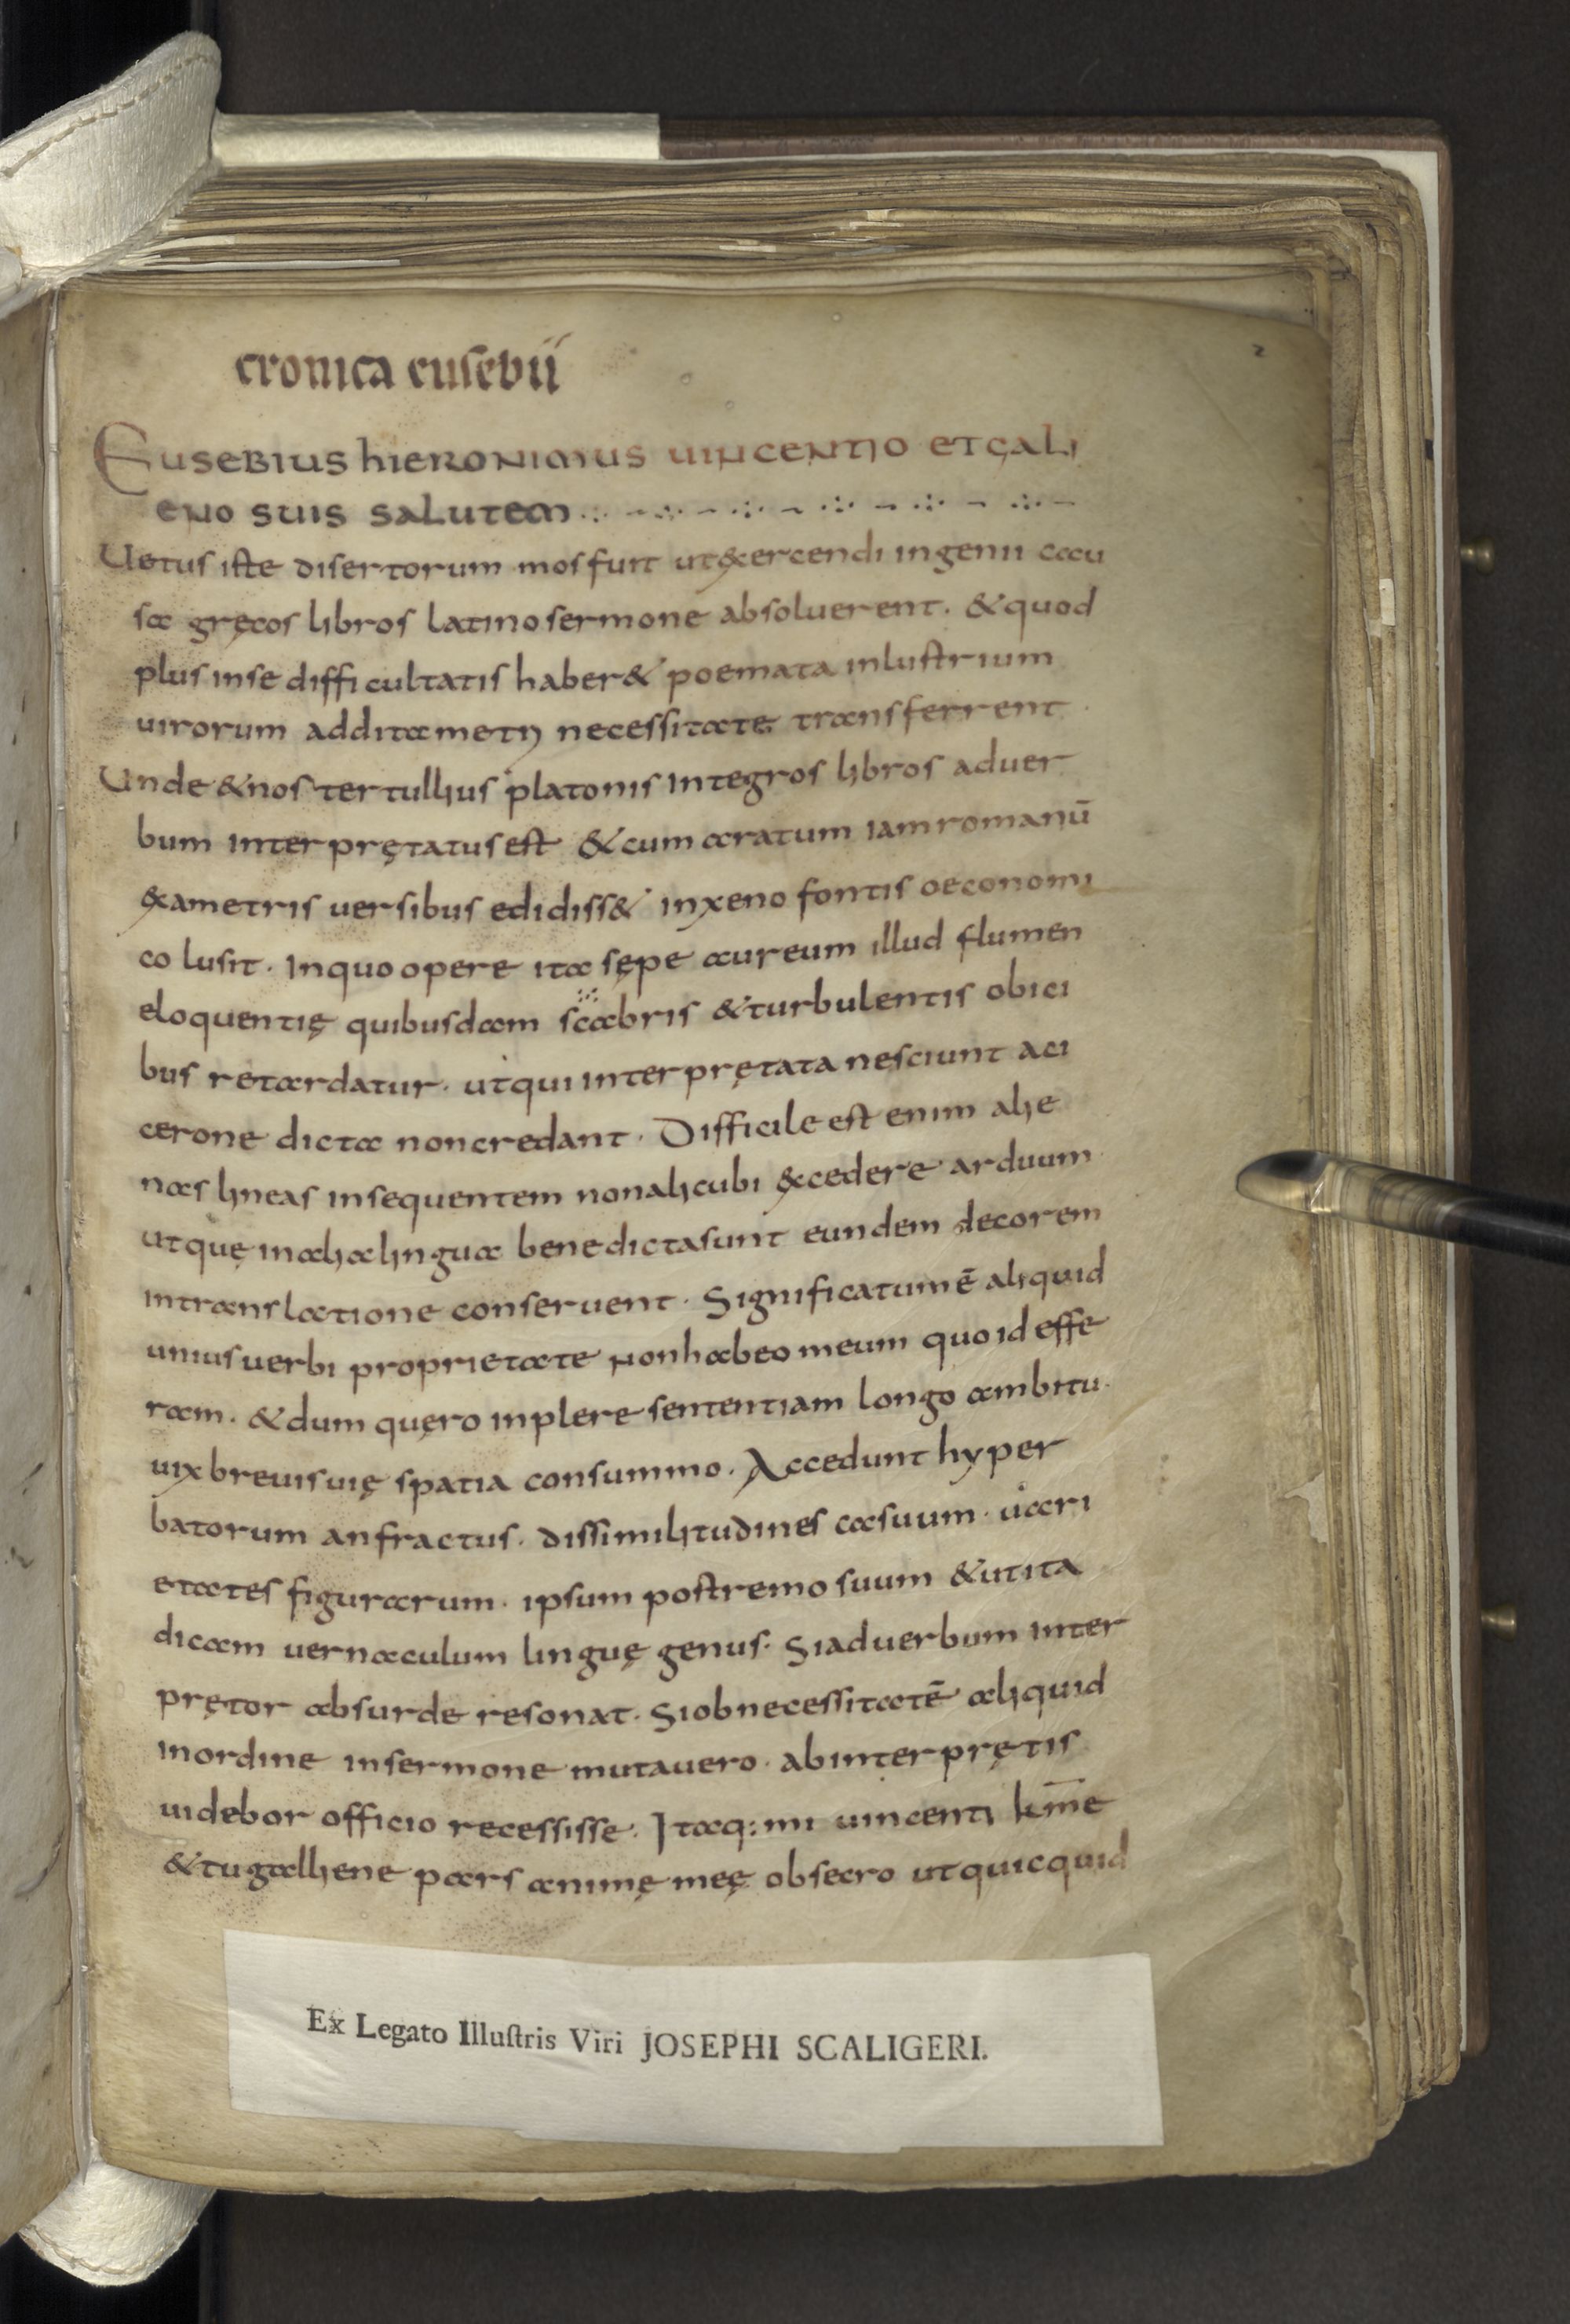 cronica eusebii
2
Eusebius hieronimus uincentio et gali
eno suis salutem
Uetus iste disertorum mos fuit ut &xercendi ingenii cau
sa gręcos libros latino sermone absoluerent. & quod
plus in se difficultatis haber& poemata inlustrium
uirorum addita metri necessitate transferrent
Unde & nos tertullius platonis integros libros ad uer
bum interprętatus est & cum aratum iam romanū
&xametris uersibus edidiss& in xenofontis oeconomi
co lusit. In quo opere ita sępe aureum illud flumen
eloquentię quibusdam scabris & turbulentis obici
bus retardatur. ut qui interprętata nesciunt a ci
cerone dicta non credant. Difficile est enim alie
nas lineas insequentem non alicubi &xcedere arduum
ut quę in alia lingua bene dicta sunt eundem decorem
in translatione conseruent. Significatum ē aliquid
unius uerbi proprietate non habeo meum quo id effe
ram. & dum quęro inplere sententiam longo ambitu.
uix breuis uię spatia consummo. Accedunt hyper
batorum anfractus. dissimilitudines casuum. uari
etates figurarum. ipsum postremo suum & ut ita
dicam uernaculum linguę genus. Si ad uerbum inter
prętor absurde resonat. Si ob necessitatē aliquid
in ordine in sermone mutauero. ab interprętis
uidebor officio recessisse. Itaq: mi uincenti kr̄me
& tu galliene pars animę meę obsecro ut quicquid
Ex Legato Illuſtris Viri JOSEPHI SCALIGERI.